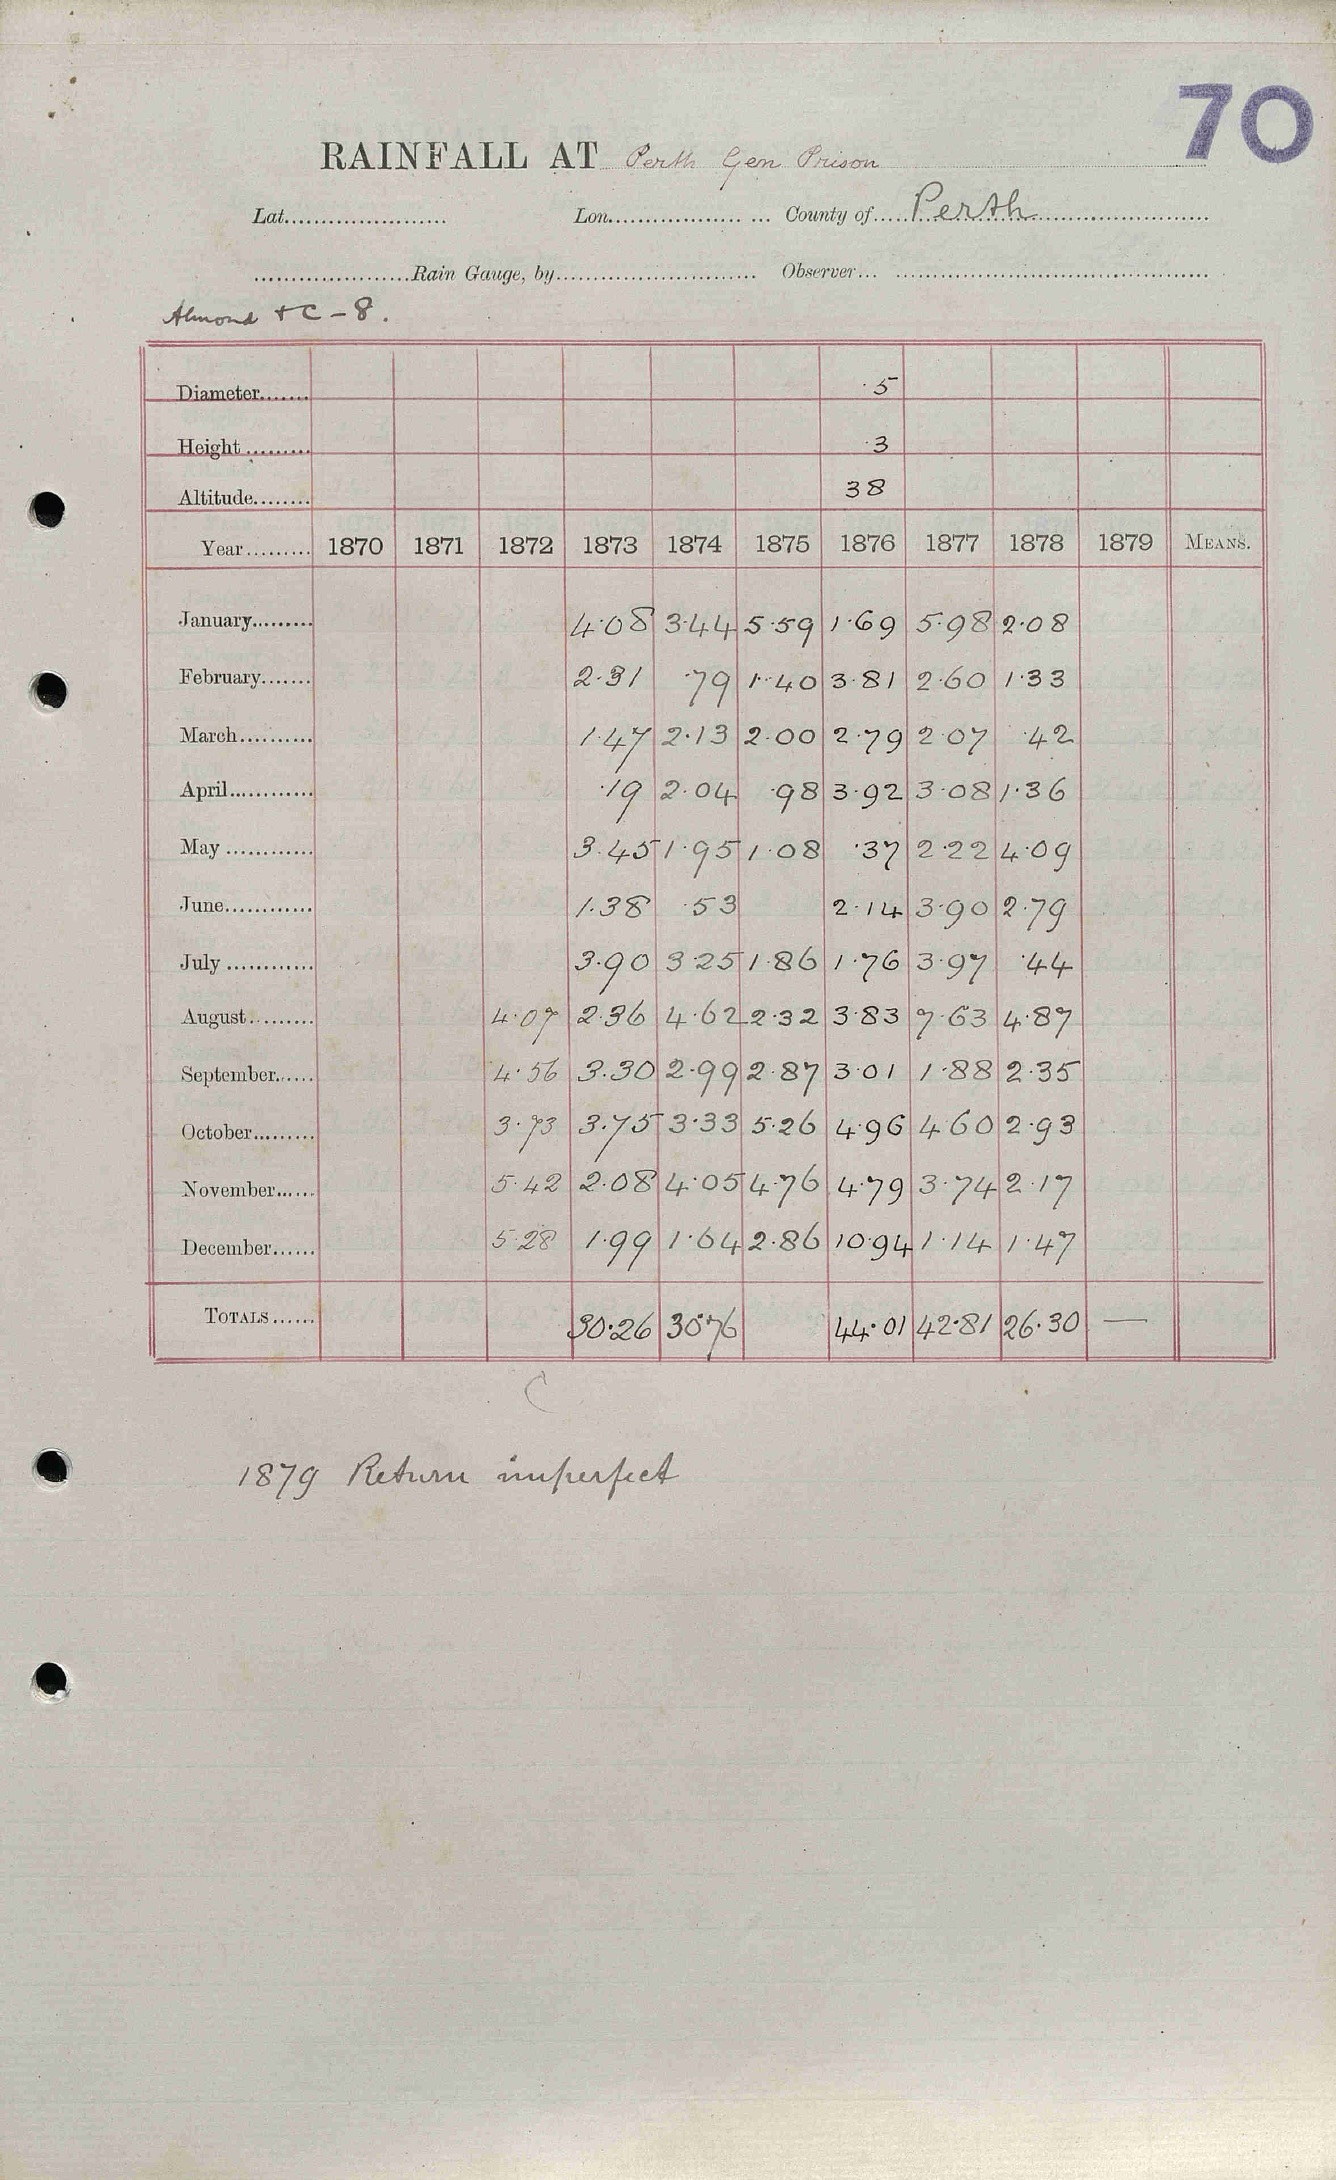 70
RAINFALL AT Perth Gen Prison
Lat...................... Lon................... ... County of.....Perth......................
.....................Rain Gauge, by........................... Observer... ..........................................
Almond + C - 8.
Diameter....... ·5
Height ......... ·3
Altitude........ 38
Year......... 1870 1871 1872 1873 1874 1875 1876 1877 1878 1879 MEANS.
January......... 4·08 3·44 5·59 1·69 5·98 2·08
February....... 2·31 ·79 1·40 3·81 2·60 1·33
March.......... 1·47 2·13 2·00 2·79 2·07 ·42
April............ ·19 2·04 ·98 3·92 3·08 1·36
May ............ 3·45 1·95 1·08 ·37 2·22 4·09
June............ 1·38 ·53 2·14 3·90 2·79
July ............ 3·90 3·25 1·86 1·76 3·97 ·44
August.......... 4·07 2·36 4·62 2·32 3·83 7·63 4·87
September...... 4·56 3·30 2·99 2·87 3·01 1·88 2·35
October......... 3·73 3·75 3·33 5·26 4·96 4·60 2·93
November...... 5·42 2·08 4·05 4·76 4·79 3·74 2·17
December...... 5·28 1·99 1·64 2·86 10·94 1·14 1·47
TOTALS...... 30·26 30·76 44·01 42·81 26·30 —
C
1879 Return imperfect